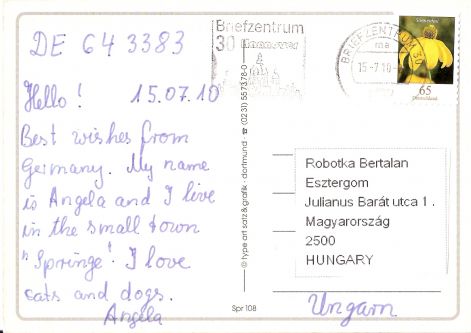 DE 643383
Hello! 15.07.10
Best wishes from
Germany. My name
is Angela and I live
in the small town
"Springe". I love
cats and dogs.
Angela
Briefzentrum
30
BRIEFZENTRUM 30
ma
15-7.10
65
Deutschland
© type art satz & grafik · dortmund · ☎ (0231) 557378-0
Spr 108
Robotka Bertalan
Esztergom
Julianus Barát utca 1 .
Magyarország
2500
HUNGARY
Ungarn